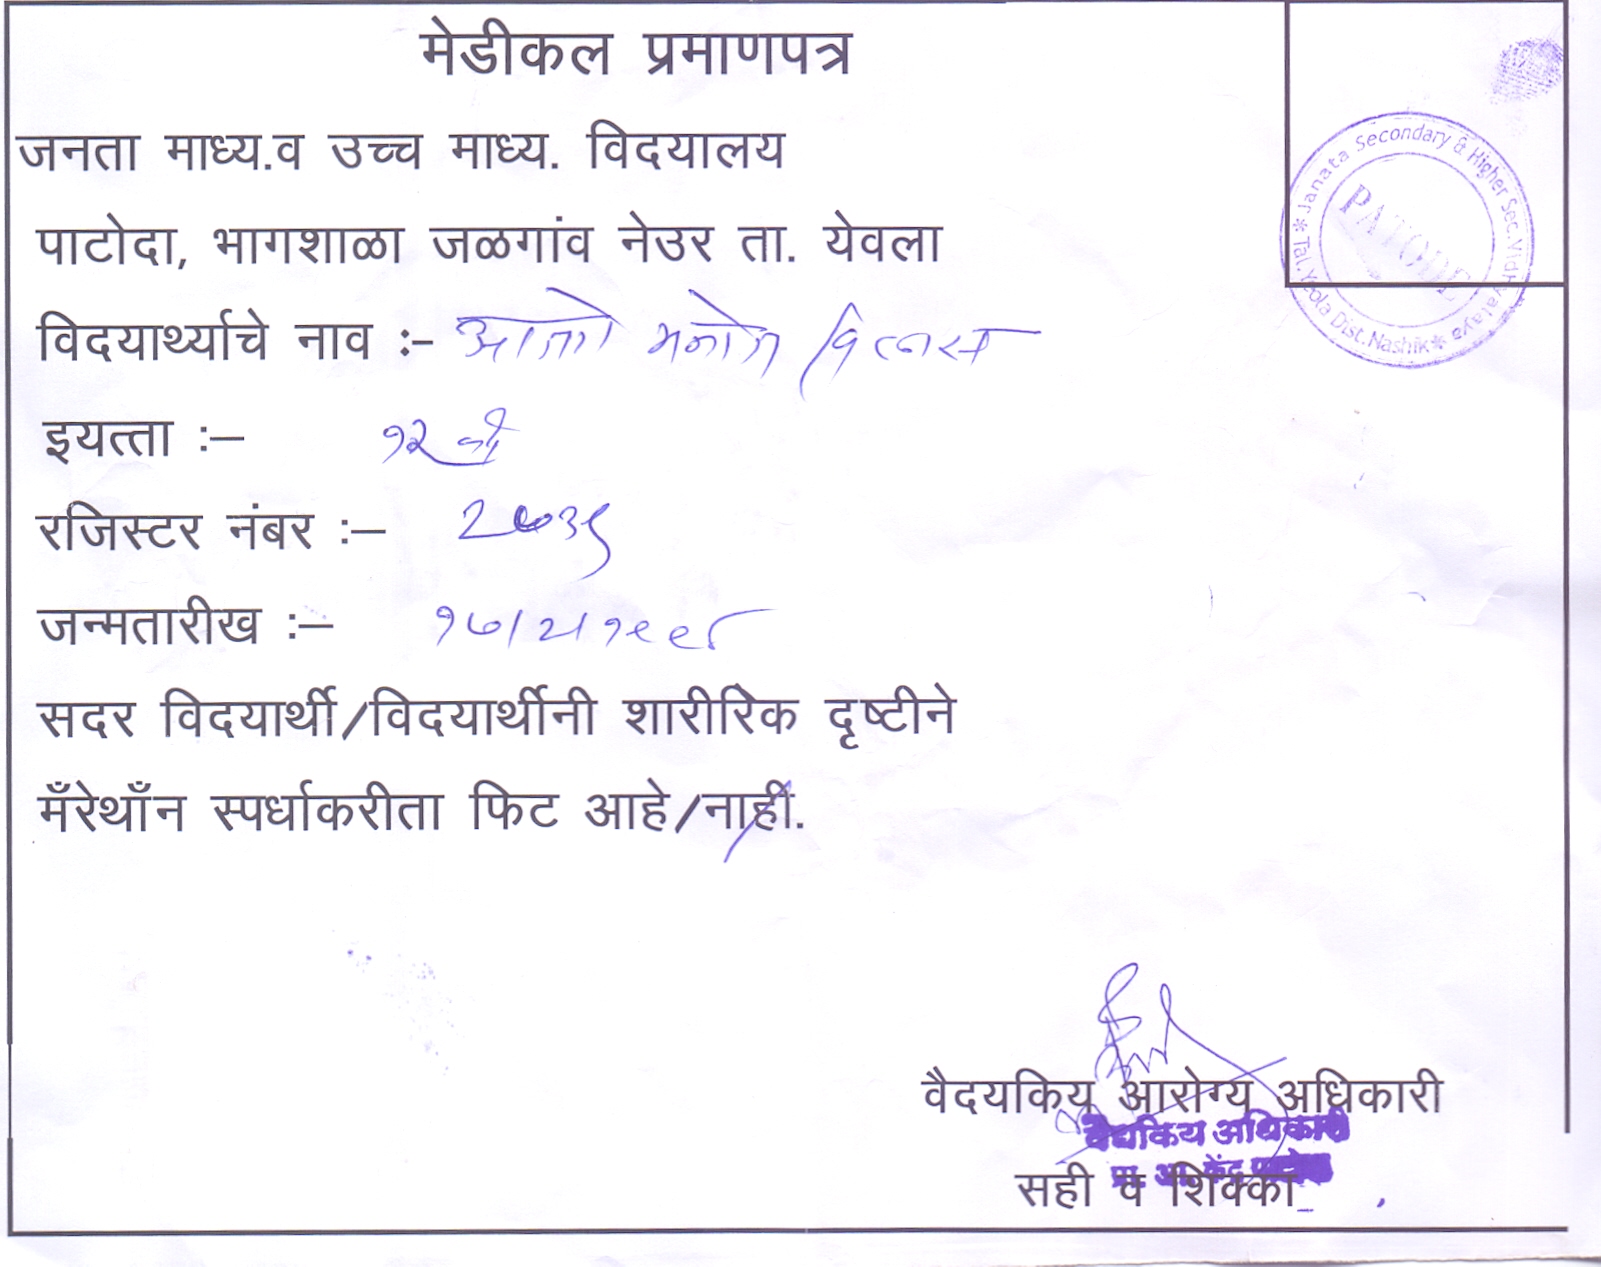 मेडीकल प्रमाणपत्र
जनता माध्य.व उच्च माध्य. विदयालय
पाटोदा, भागशाळा जळगांव नेउर ता. येवला
विदयार्थ्याचे नाव :- मनोज विलास
इयत्ता :– १२ वी
रजिस्टर नंबर :–
जन्मतारीख :–
सदर विदयार्थी/विदयार्थीनी शारीरिक दृष्टीने
मँरेथाँन स्पर्धाकरीता फिट आहे/नाहीं.
Janata Secondary & Higher Sec.Vidhyalaya * Tal.Yeola Dist.Nashik *
PATODE
वैदयकिय आरोग्य अधिकारी
वैद्यकिय अधिकारी
प्रा. आ. केंद्र
सही व शिक्का